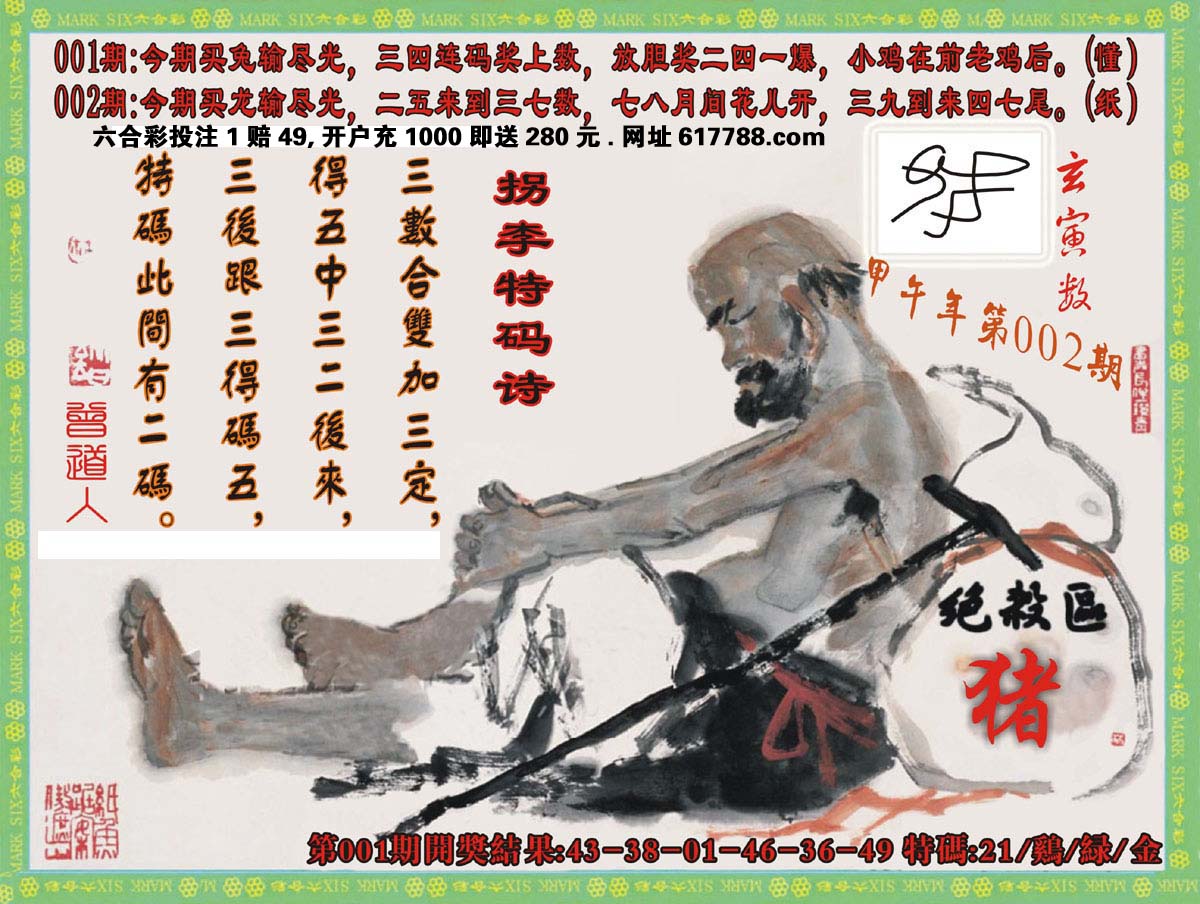 MARK SIX六合彩
001期:今期买兔输尽光，三四连码奖上数，放胆奖二四一爆，小鸡在前老鸡后。(懂)
002期:今期买龙输尽光，二五来到三七数，七八月间花儿开，三九到来四七尾。(纸)
六合彩投注 1 赔 49, 开户充 1000 即送 280 元 . 网址 617788.com
玄寅数
甲午年第002期
拐李特码诗
三數合雙加三定，
得五中三二後來，
三後跟三得碼五，
特碼此間有二碼。
曾道人
绝殺區
猪
第001期開獎結果:43-38-01-46-36-49 特碼:21/鷄/緑/金